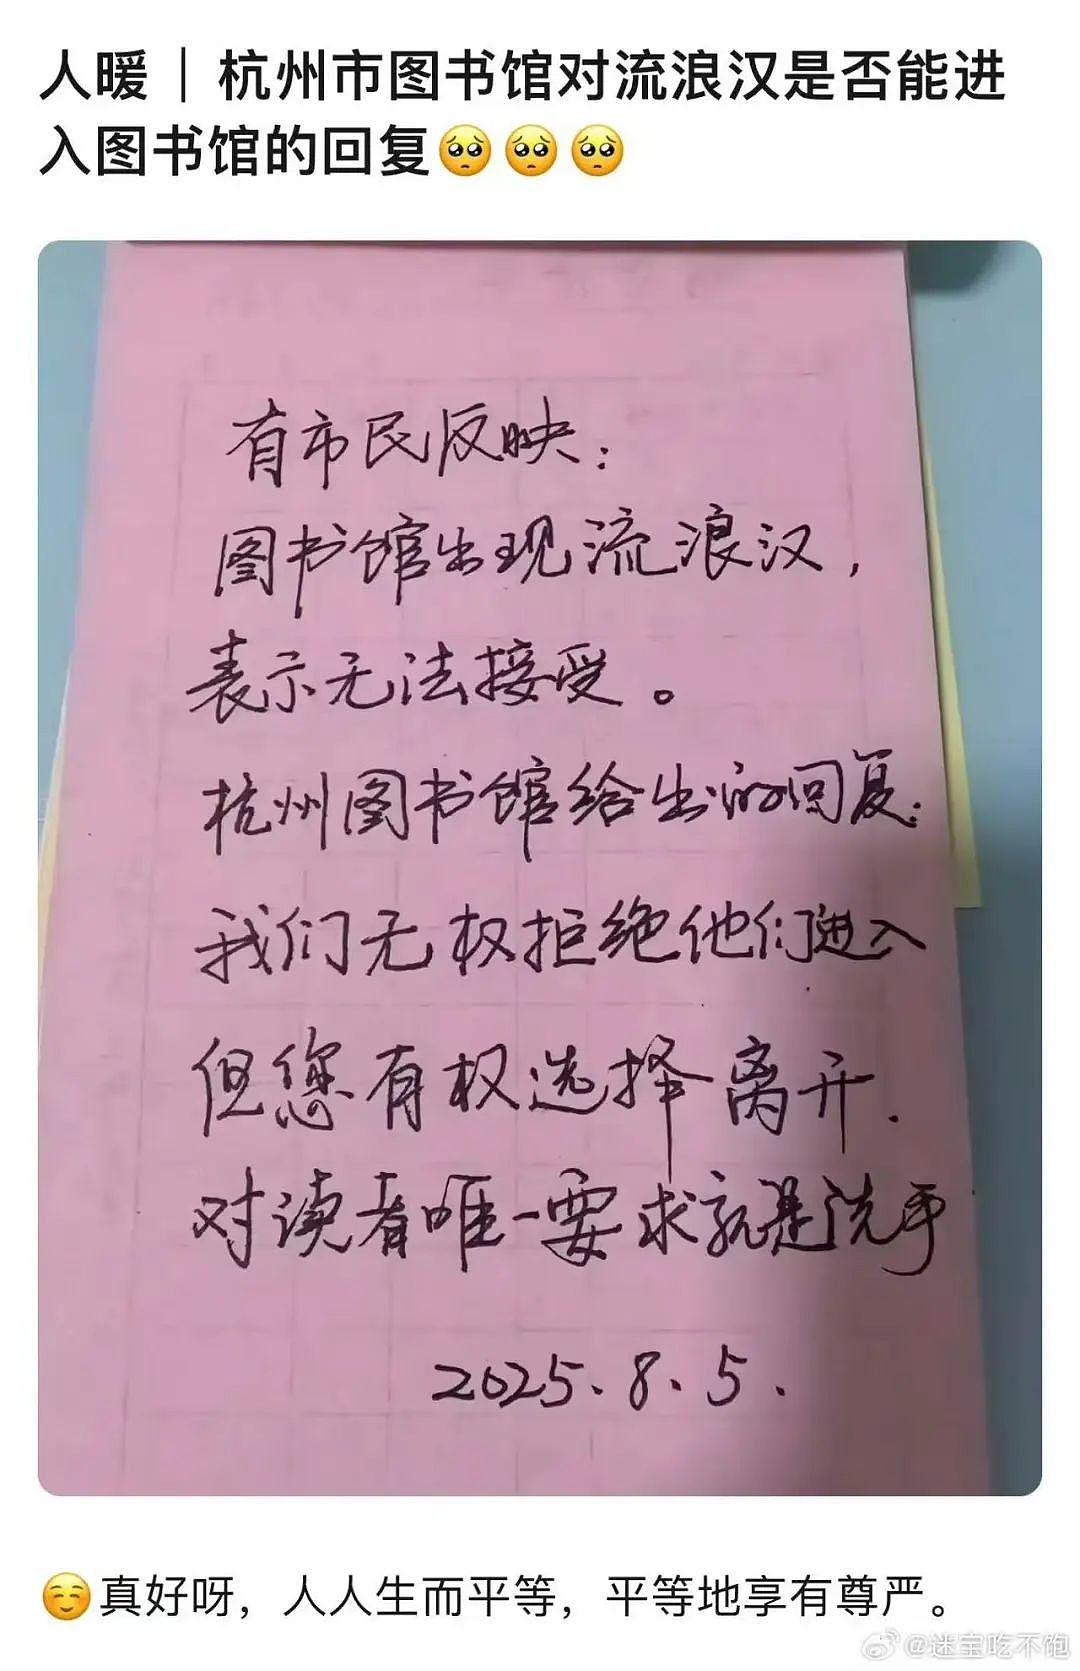 人暖｜杭州市图书馆对流浪汉是否能进
入图书馆的回复🥺🥺🥺
有市民反映：
图书馆出现流浪汉，
表示无法接受。
杭州图书馆给出的回复：
我们无权拒绝他们进入
但您有权选择离开.
对读者唯一要求就是洗手
2025.8.5.
☺️真好呀，人人生而平等，平等地享有尊严。
@迷宝吃不饱